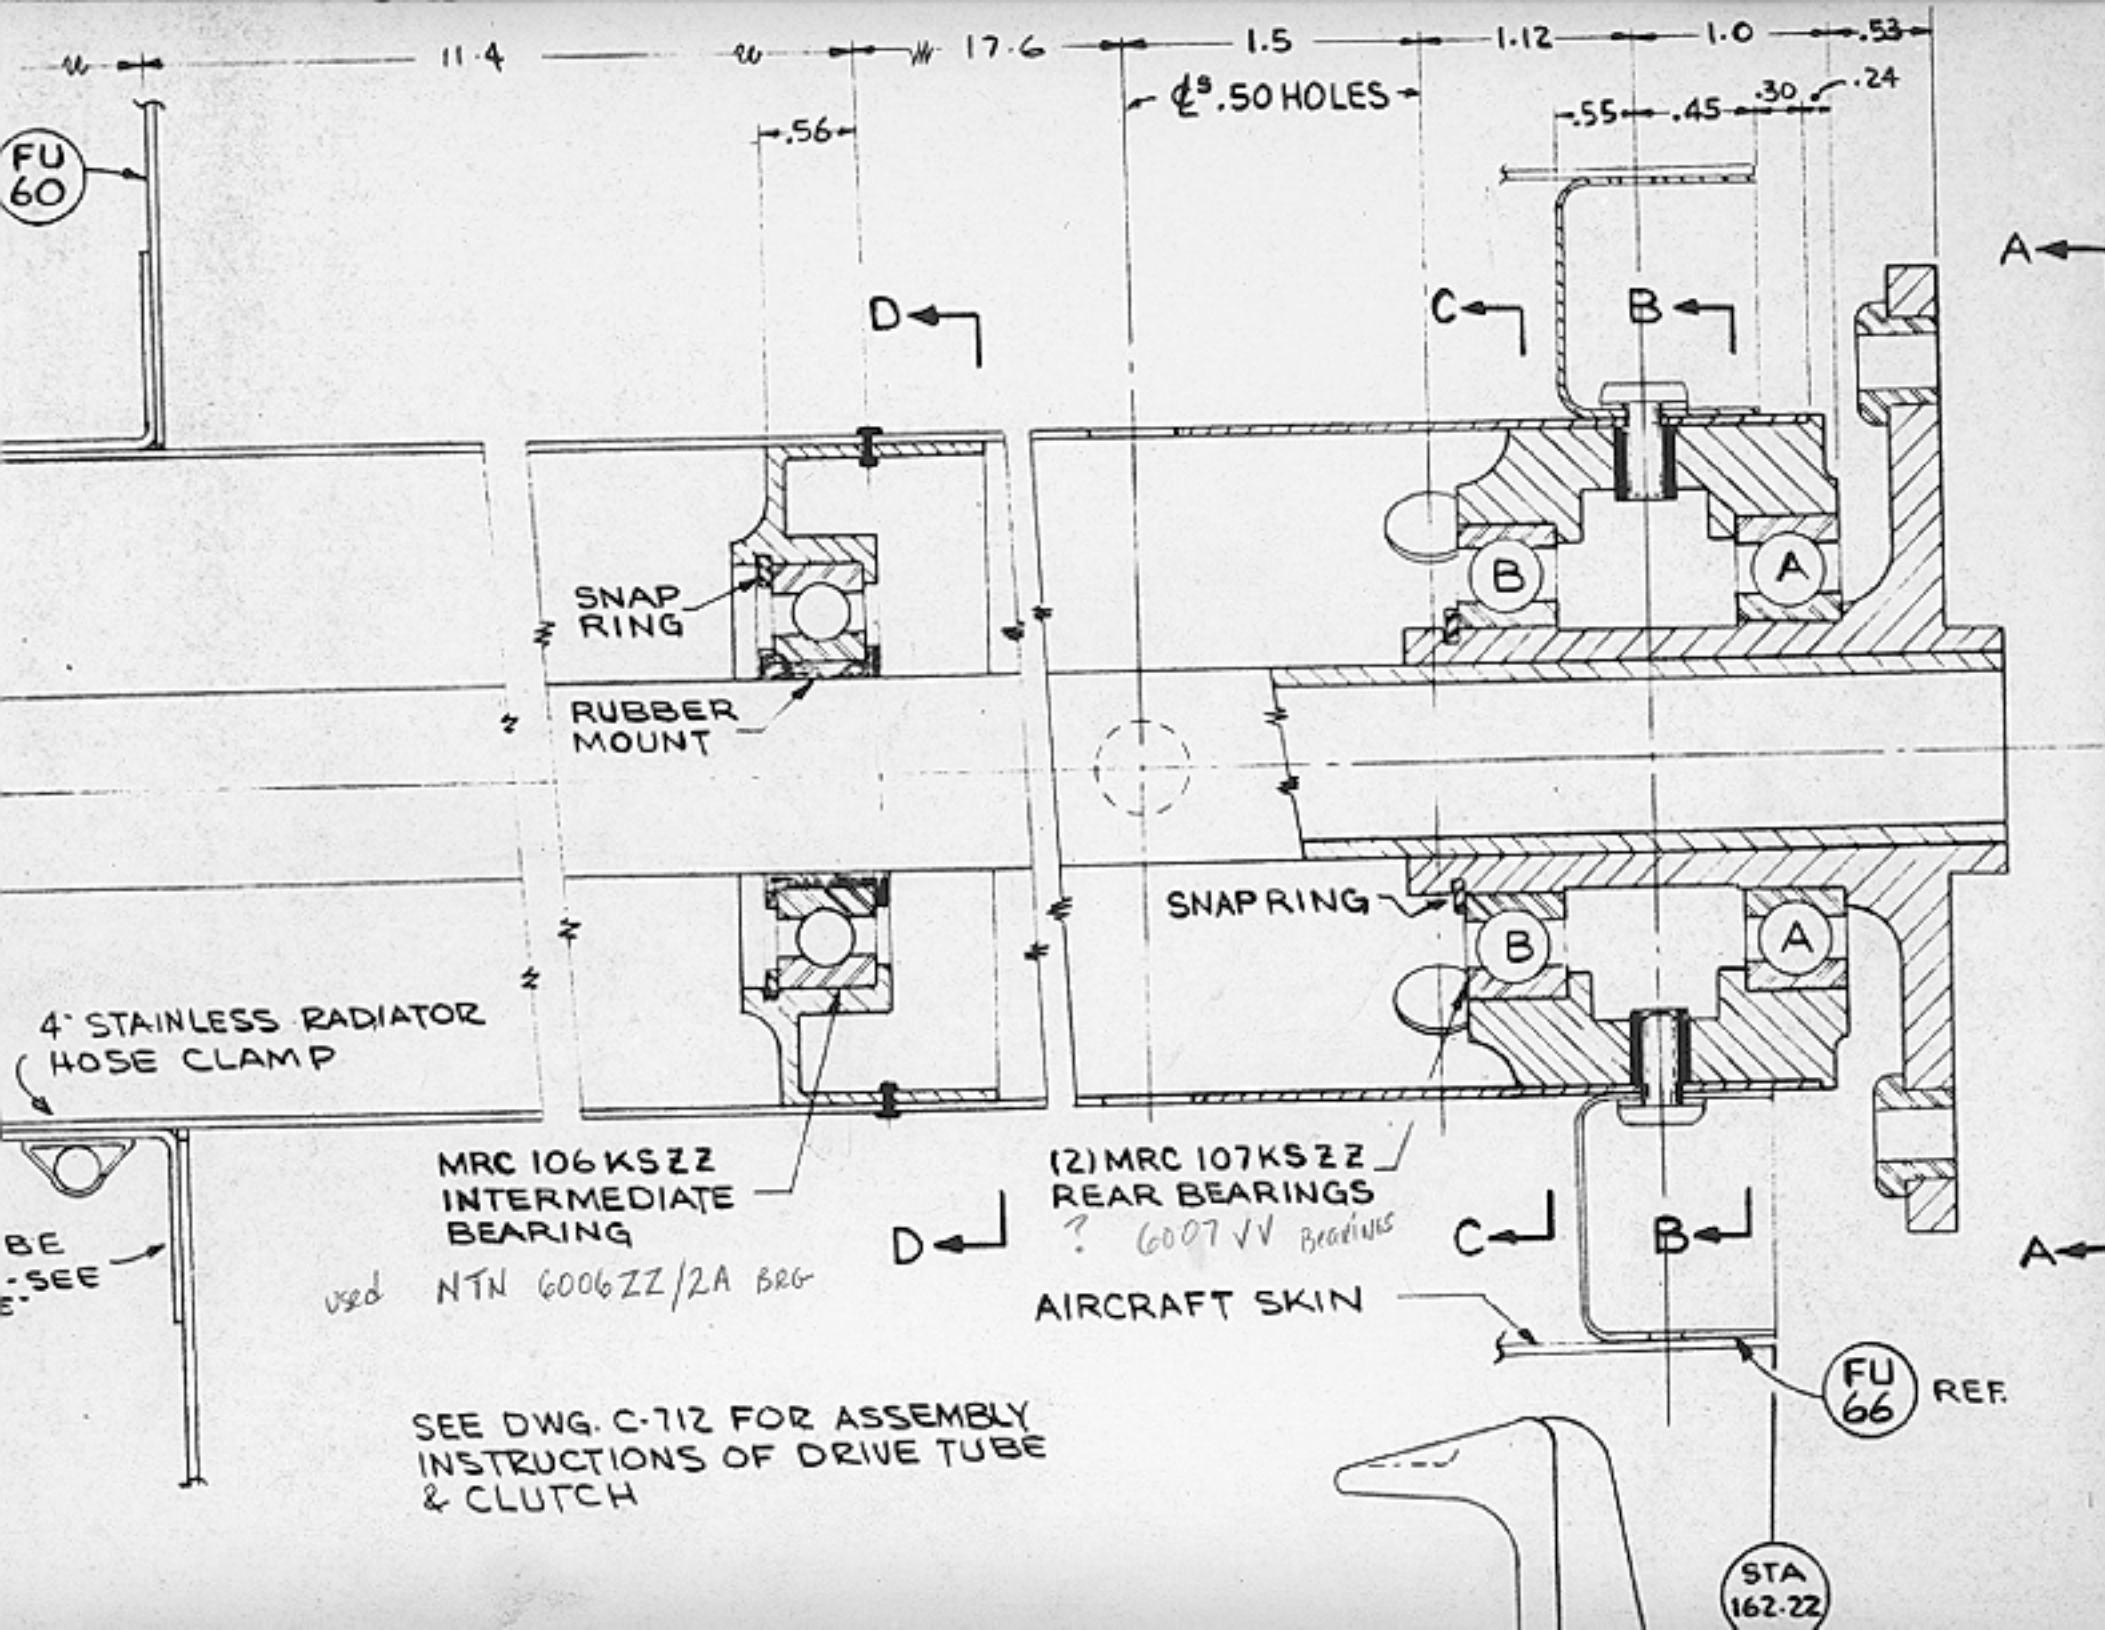 11.4
17.6
1.5
1.12
1.0
.53
℄s .50 HOLES
.56
.55
.45
.30
.24
FU
60
A
D
C
B
SNAP
RING
B
A
RUBBER
MOUNT
SNAP RING
B
A
4" STAINLESS RADIATOR
HOSE CLAMP
MRC 106 KSZZ
INTERMEDIATE
BEARING
(2) MRC 107KSZZ
REAR BEARINGS
? 6007 VV BEARINGS
BE
-SEE
E-
used NTN 6006ZZ/2A BRG
D
C
B
A
AIRCRAFT SKIN
FU
66
REF.
SEE DWG. C-712 FOR ASSEMBLY
INSTRUCTIONS OF DRIVE TUBE
& CLUTCH
STA
162.22